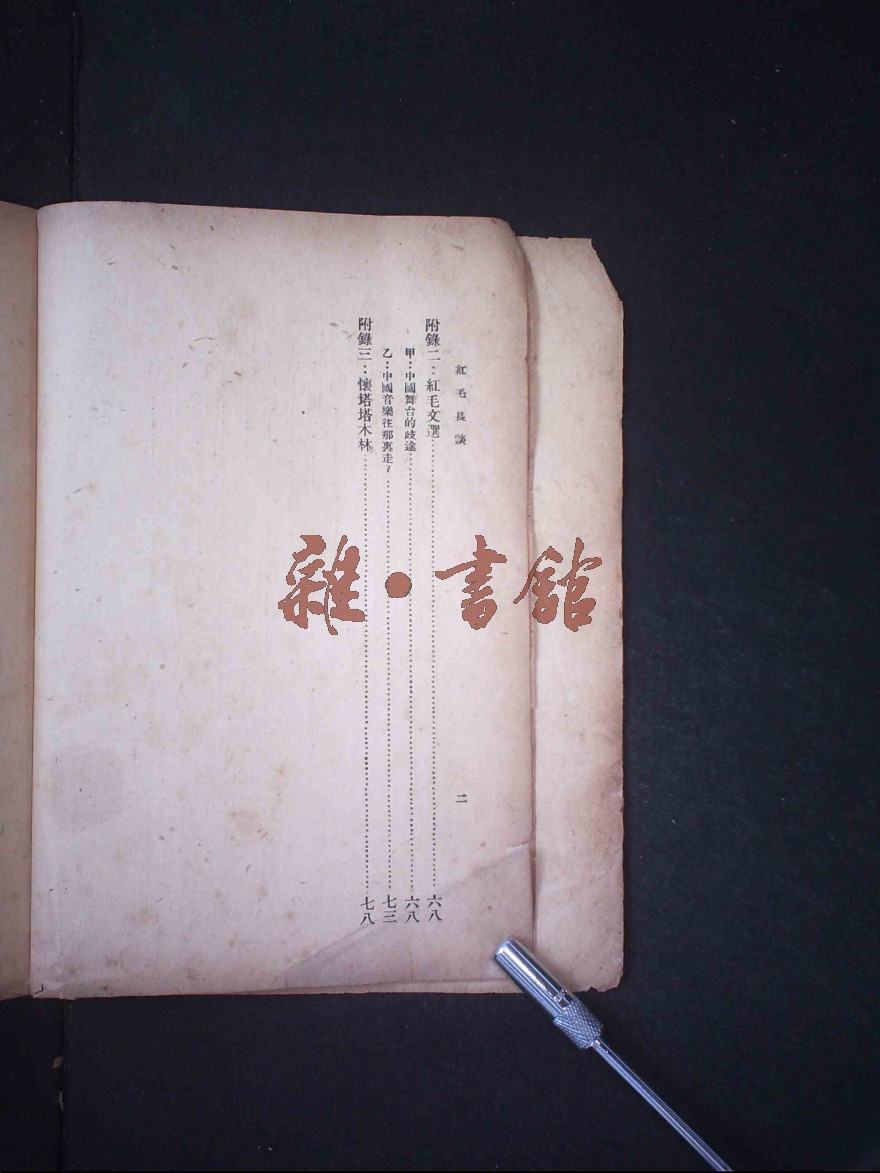 紅毛長談
二
附錄二：紅毛文選……六八
甲：中國舞台的歧途……六八
乙：中國音樂往那裏走？……七三
附錄三：懷塔塔木林……七八
雜·書館